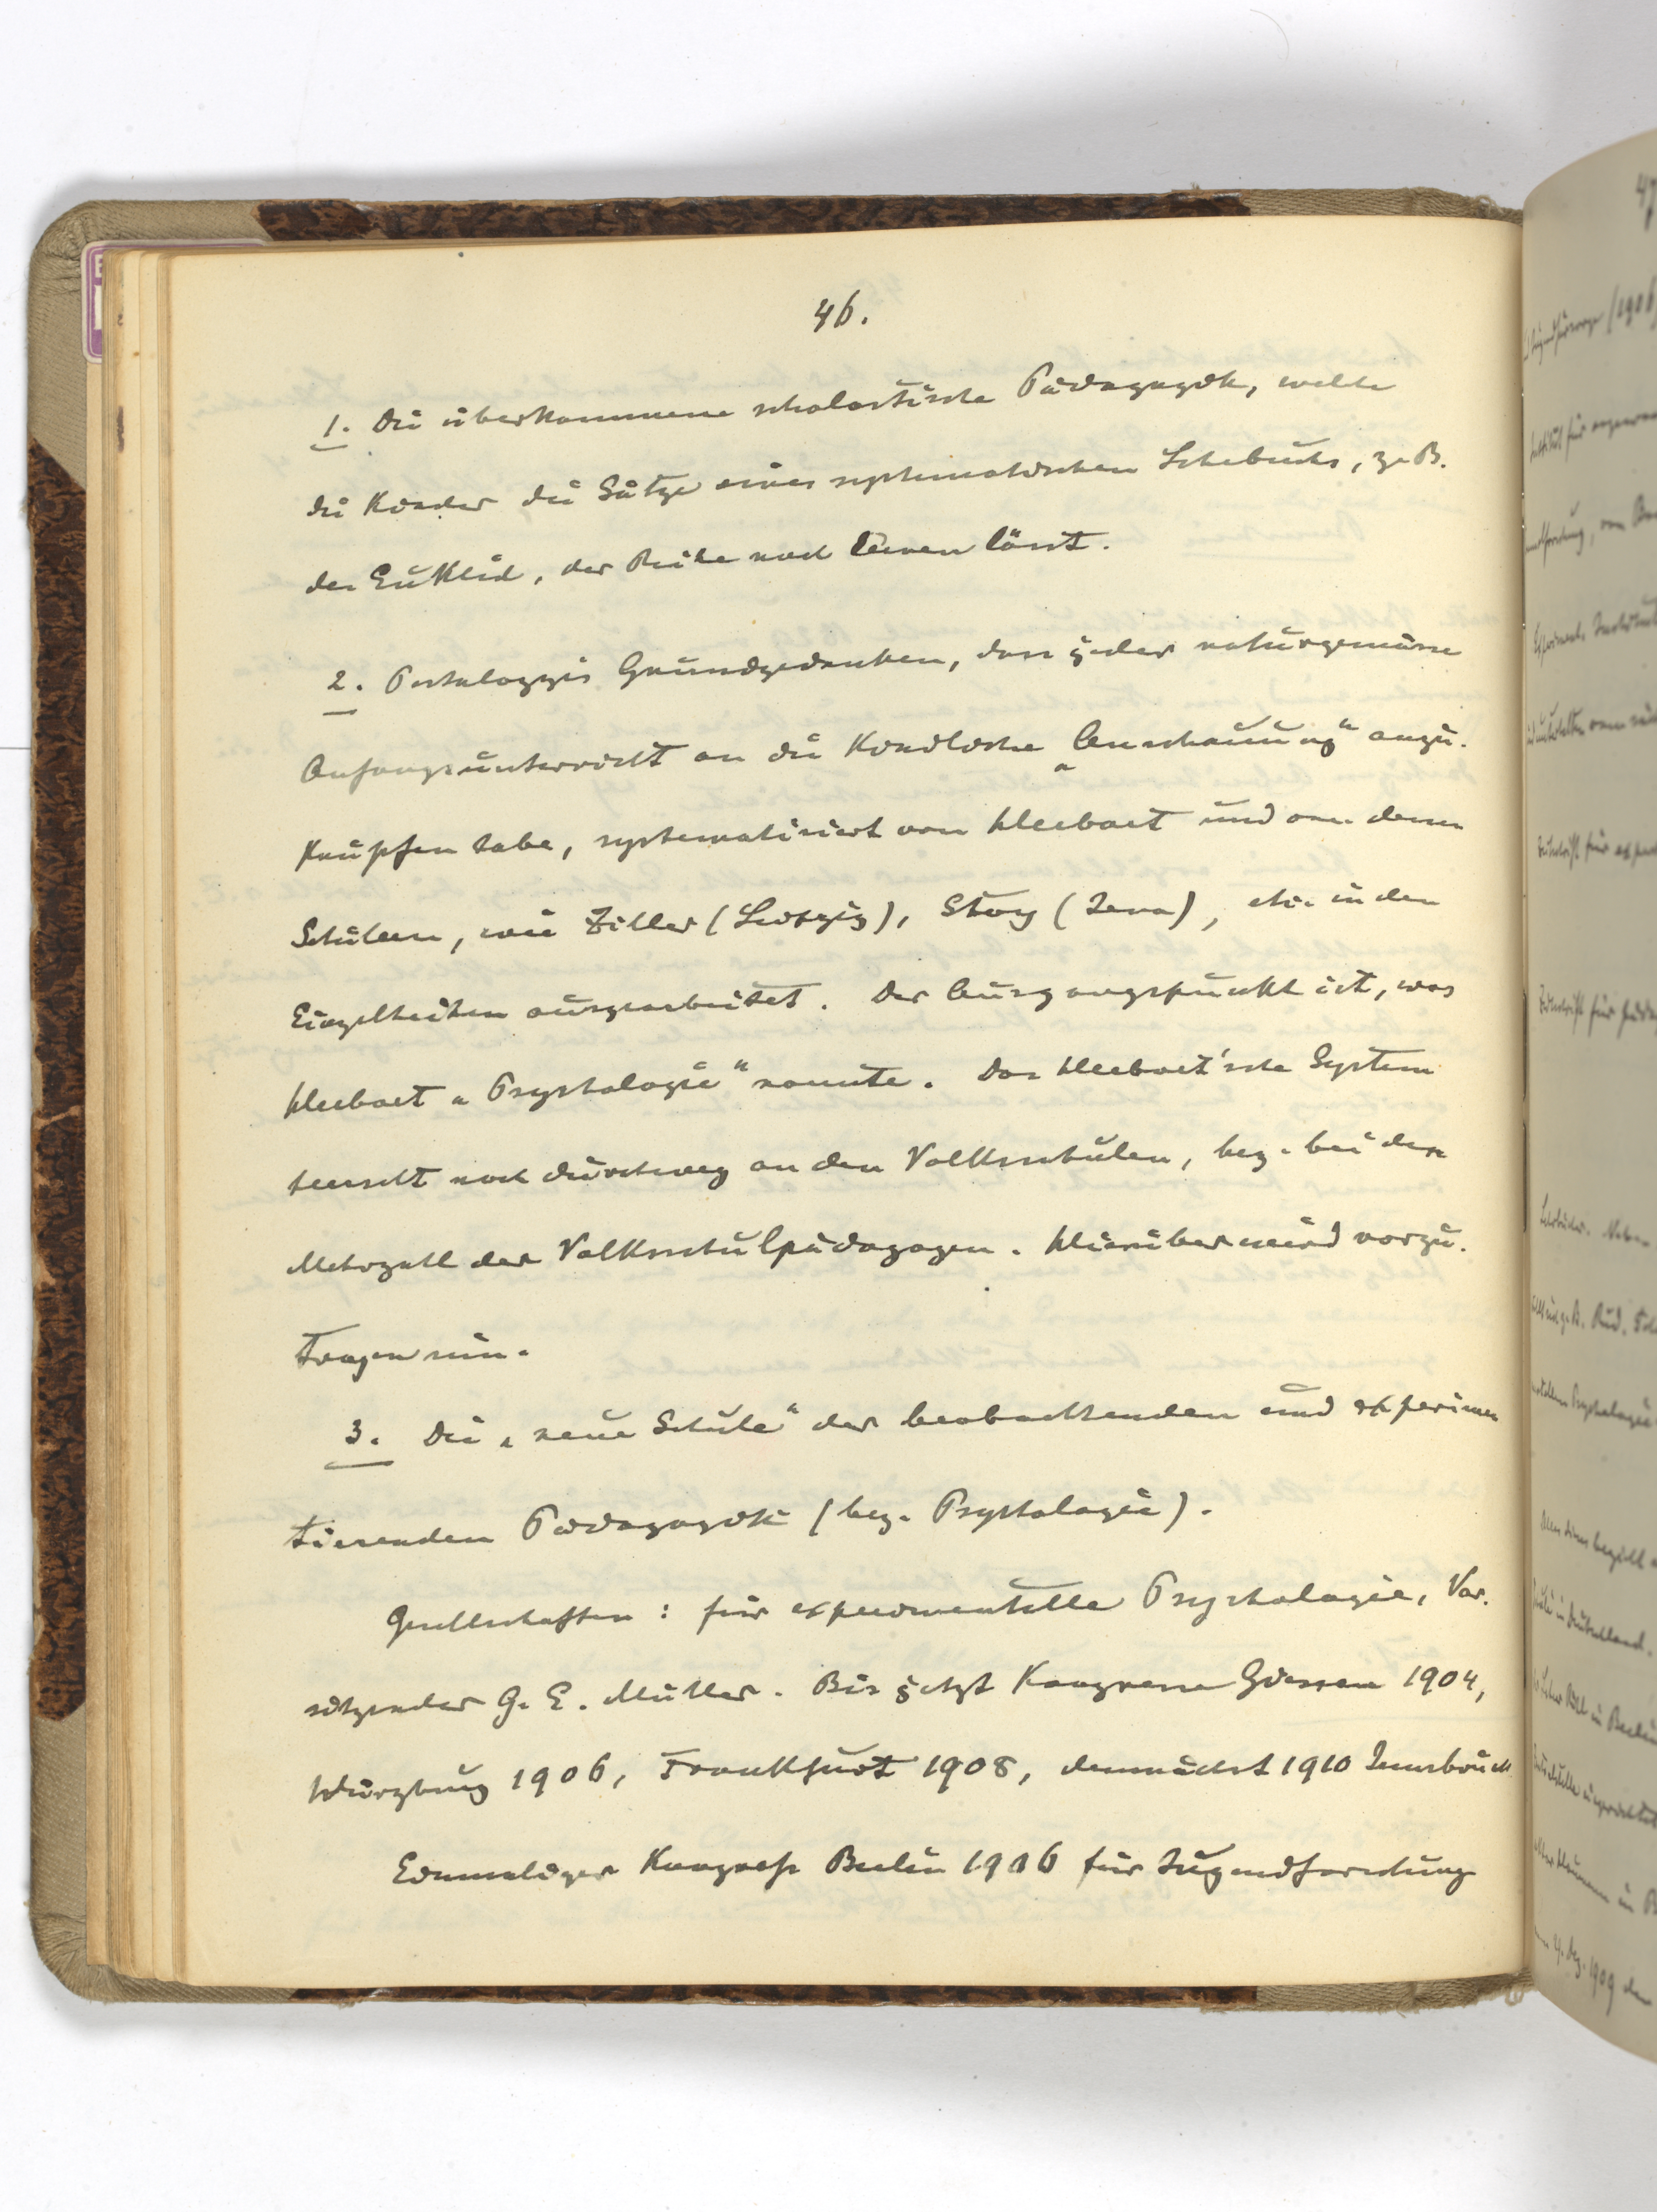 46.
1. Die überkommene scholastische Pädagogik, welche
die Kinder die Sätze eines systematischen Lehrbuchs, z. B.
des Euklid, der Reihe nach lernen lässt.
2. Pestalozzis Grundgedanken, dass jeder naturgemässe
Anfangsunterricht an die kindliche „Anschauung“ anzu-
knüpfen habe, systematisiert von Herbart und von dessen
Schülern, wie Ziller (Leipzig), Stoy (Jena), etc. in den
Einzelheiten ausgearbeitet. Der Ausgangspunkt ist, was
Herbart „Psychologie“ nannte. Das Herbart'sche System
herrscht noch durchweg an den Volksschulen, bez. bei der
Mehrzahl der Volksschulpädagogen. Hierüber wird vorzu-
tragen sein.
3. Die „neue Schule“ der beobachtenden und experimen
tierenden Pädagogik (bez. Psychologie).
Gesellschaften: für experimentelle Psychologie, Vor-
sitzender G. E. Müller. Bis jetzt Kongresse Giessen 1904,
Würzburg 1906, Frankfurt 1908, demnächst 1910 Innsbruck
Einmaliger Kongress Berlin 1906 für Jugendforschung
47
(1906
für
Zeitschrift für
Zeitschrift für
Psychologie
in Deutschland.
in Berlin
4. Dez. 1909 der